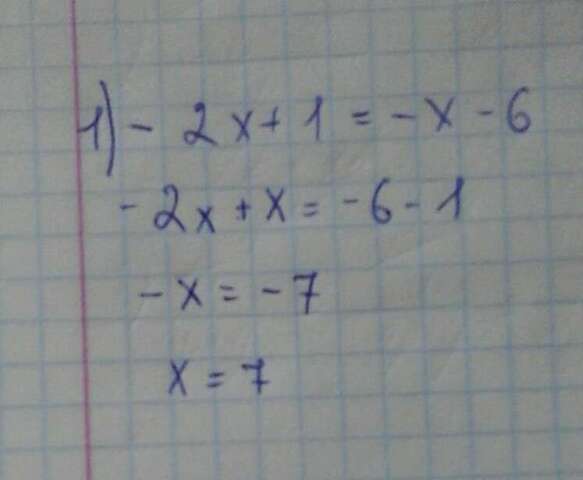 1) - 2x + 1 = - x - 6
- 2x + x = - 6 - 1
- x = - 7
x = 7